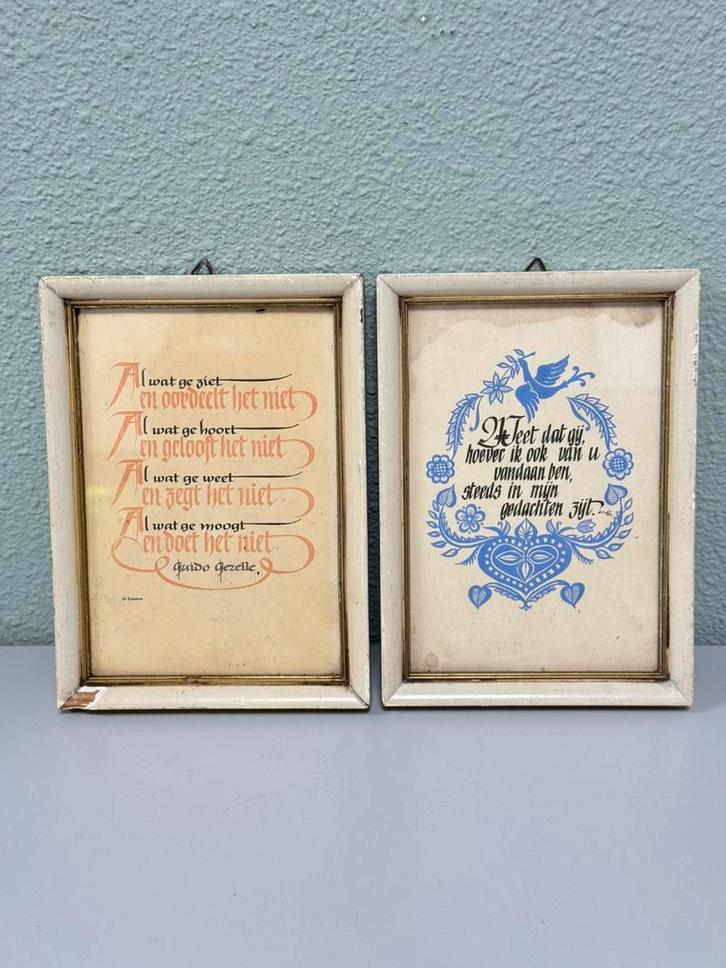 Al wat ge ziet
en oordeelt het niet
Al wat ge hoort
en gelooft het niet
Al wat ge weet
en zegt het niet
Al wat ge moogt
en doet het niet
Guido Gezelle.
Weet dat gij,
hoever ik ook van u
vandaan ben,
steeds in mijn
gedachten zijt.